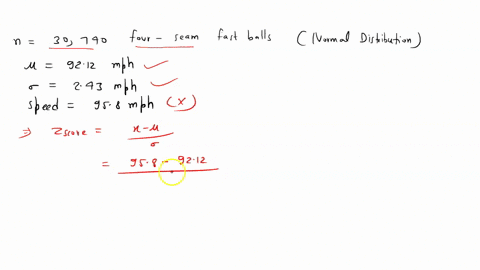 n = 30,790 four-seam fast balls (Normal Distibution)
μ = 92.12 mph ✓
σ = 2.43 mph ✓
speed = 95.8 mph (x)
⇒ Zscore = x-μ / σ
= 95.8 - 92.12